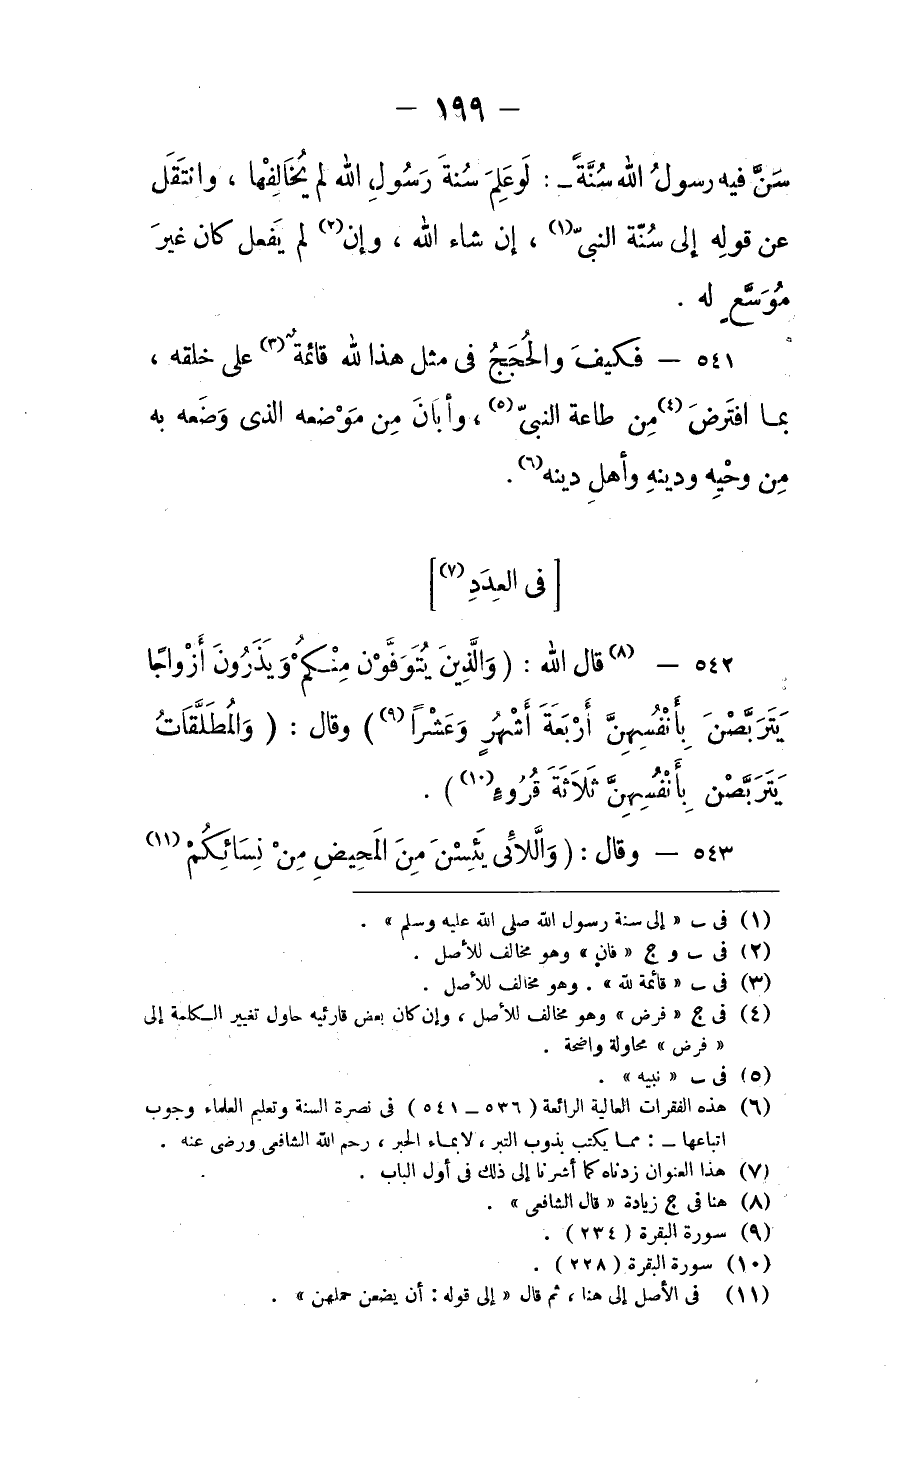 — ١٩٩ —
سَنَّ فيه رسولُ الله سُنَّةً ــ : لَوعَلِمَ سُنةَ رَسُولِ الله لم يُخَالِفْها ، وانتَقَل
عن قولِه إلى سُنّة النبىّ(١) ، إن شاء الله ، وإن(٢) لم يَفعل كان غيرَ
مُوَسَّعٍ له .
٥٤١ — فكيفَ والحُجَجُ فى مثل هذا لله قائمة(٣) على خلقه ،
بمـا افتَرضَ(٤) مِن طاعة النبىّ(٥) ، وأبَانَ مِن مَوْضعه الذى وَضَعه به
مِن وحْيِه ودينهِ وأهلِ دينه(٦) .
[ فى العِدَدِ(٧) ]
٥٤٢ — (٨) قال الله : ( وَالَّذِينَ يُتَوَفَّوْن مِنْـكُمْ وَيَذَرُونَ أَزْواجًا
يَتَرَبَّصْنَ بِأَنْفُسِهِنَّ أَرْبَعَةَ أَشْهُرٍ وَعَشْرًا(٩) ) وقال : ( وَالْمُطَلَّقَاتُ
يَتَرَبَّصْن بِأَنْفُسِهِنَّ ثَلَاثَةَ قُرُوءٍ(١٠) ) .
٥٤٣ — وقال : ( وَالَّلاَّئى يَئِسْنَ مِنَ الْمَحِيضِ مِنْ نِسَائِكُمْ(١١)
(١) فى ب « إلى سنة رسول الله صلى الله عليه وسلم » .
(٢) فى ب و ج « فان » وهو مخالف للأصل .
(٣) فى ب « قائمة لله » . وهو مخالف للأصل .
(٤) فى ج « فرض » وهو مخالف للأصل ، وإن كان بعض قارئيه حاول تغيير الـكلمة إلى
« فرض » محاولة واضحة .
(٥) فى ب « نبيه » .
(٦) هذه الفقرات العالية الرائعة ( ٥٣٦ ــ ٥٤١ ) فى نصرة السنة وتعليم العلماء وجوب
اتباعها ــ : ممـا يكتب بذوب التبر ، لابمـاء الحبر ، رحم الله الشافعى ورضى عنه .
(٧) هذا العنوان زدناه كما أشرنا إلى ذلك فى أول الباب .
(٨) هنا فى ج زيادة « قال الشافعى » .
(٩) سورة البقرة ( ٢٣٤ ) .
(١٠) سورة البقرة ( ٢٢٨ ) .
(١١) فى الأصل إلى هنا ، ثم قال « إلى قوله : أن يضعن حملهن » .